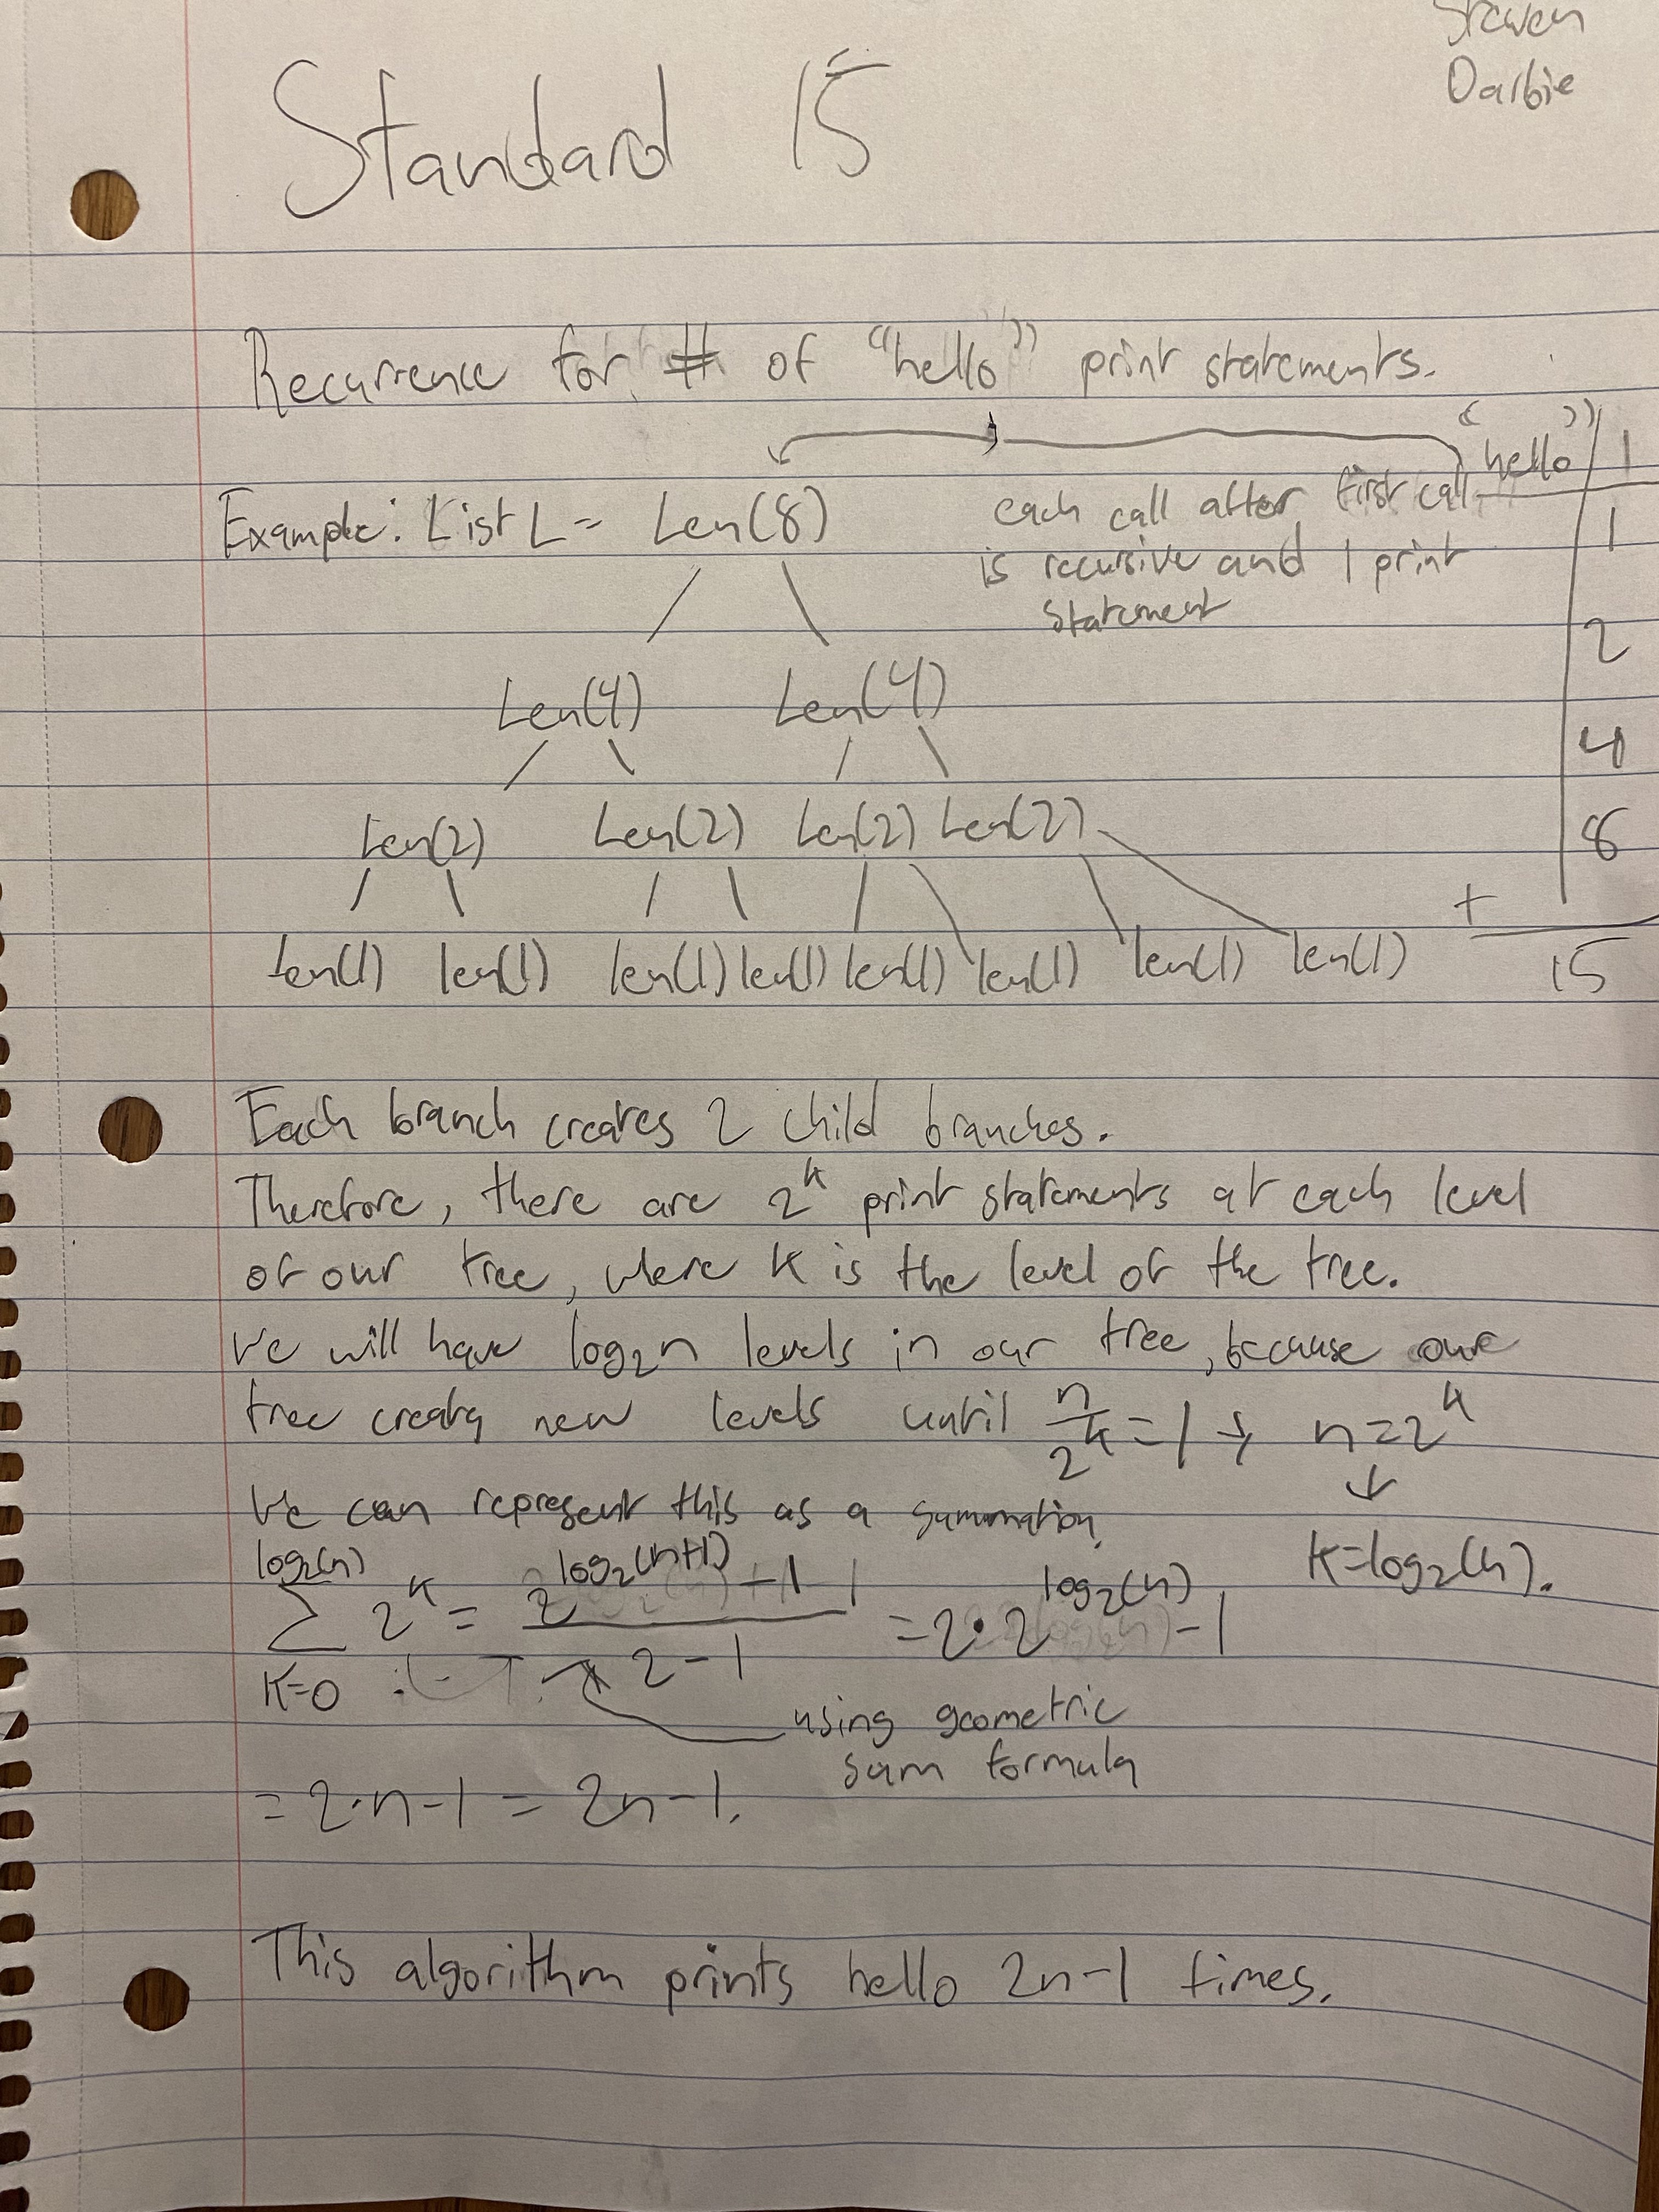 Steven
Darbie
Standard 15
Recurrence for # of "hello" print statements.
"hello" | 1
Example: List L = Len(8)
each call after first call
is recursive and 1 print
statement
1
2
4
8
+
15
Len(4) Len(4)
Len(2) Len(2) Len(2) Len(2)
Len(1) len(1) len(1) len(1) len(1) len(1) len(1) len(1)
Each branch creates 2 child branches.
Therefore, there are 2^k print statements at each level
of our tree, where k is the level of the tree.
We will have log₂n levels in our tree, because our
tree creates new levels until n/2^k = 1 → n = 2^k
↓
k = log₂(n).
We can represent this as a summation.
∑_{k=0}^{log₂(n)} 2^k = (2^{log₂(n+1)} - 1)/(2 - 1) = 2 · 2^{log₂(n)} - 1
using geometric
sum formula
= 2·n-1 = 2n-1.
This algorithm prints hello 2n-1 times.